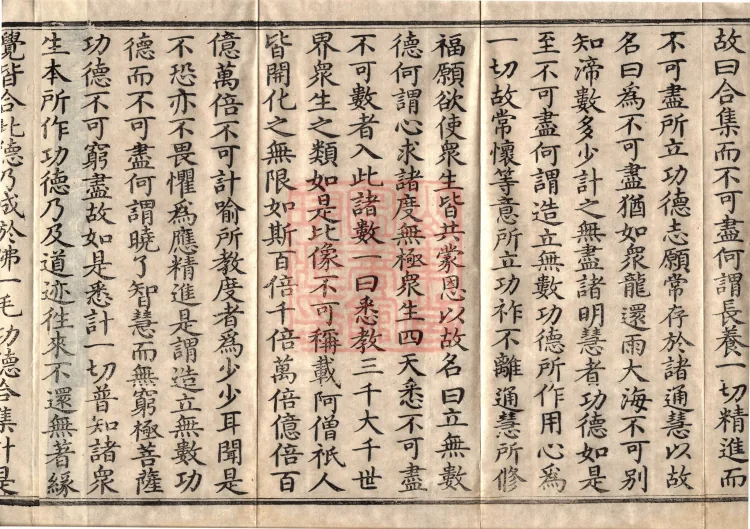 故曰合集而不可盡何謂長養一切精進而
不可盡所立功德志願常存於諸通慧以故
名曰為不可盡猶如衆龍還雨大海不可別
知渧數多少計之無盡諸明慧者功德如是
至不可盡何謂造立無數功德所作用心為
一切故常懷等意所立功祚不離通慧所修
福願欲使衆生皆共蒙恩以故名曰立無數
德何謂心求諸度無極衆生四天悉不可盡
不可數者入此諸數一曰悉教三千大千世
界衆生之類如是比像不可稱載阿僧祇人
皆開化之無限如斯百倍千倍萬倍億倍百
億萬倍不可計喻所教度者為少少耳聞是
不恐亦不畏懼為應精進是謂造立無數功
德而不可盡何謂曉了智慧而無窮極菩薩
功德不可窮盡故如是悉計一切普知諸衆
生本所作功德乃及道迹往來不還無著緣
覺皆合此德乃成於佛一毛功德合集計是